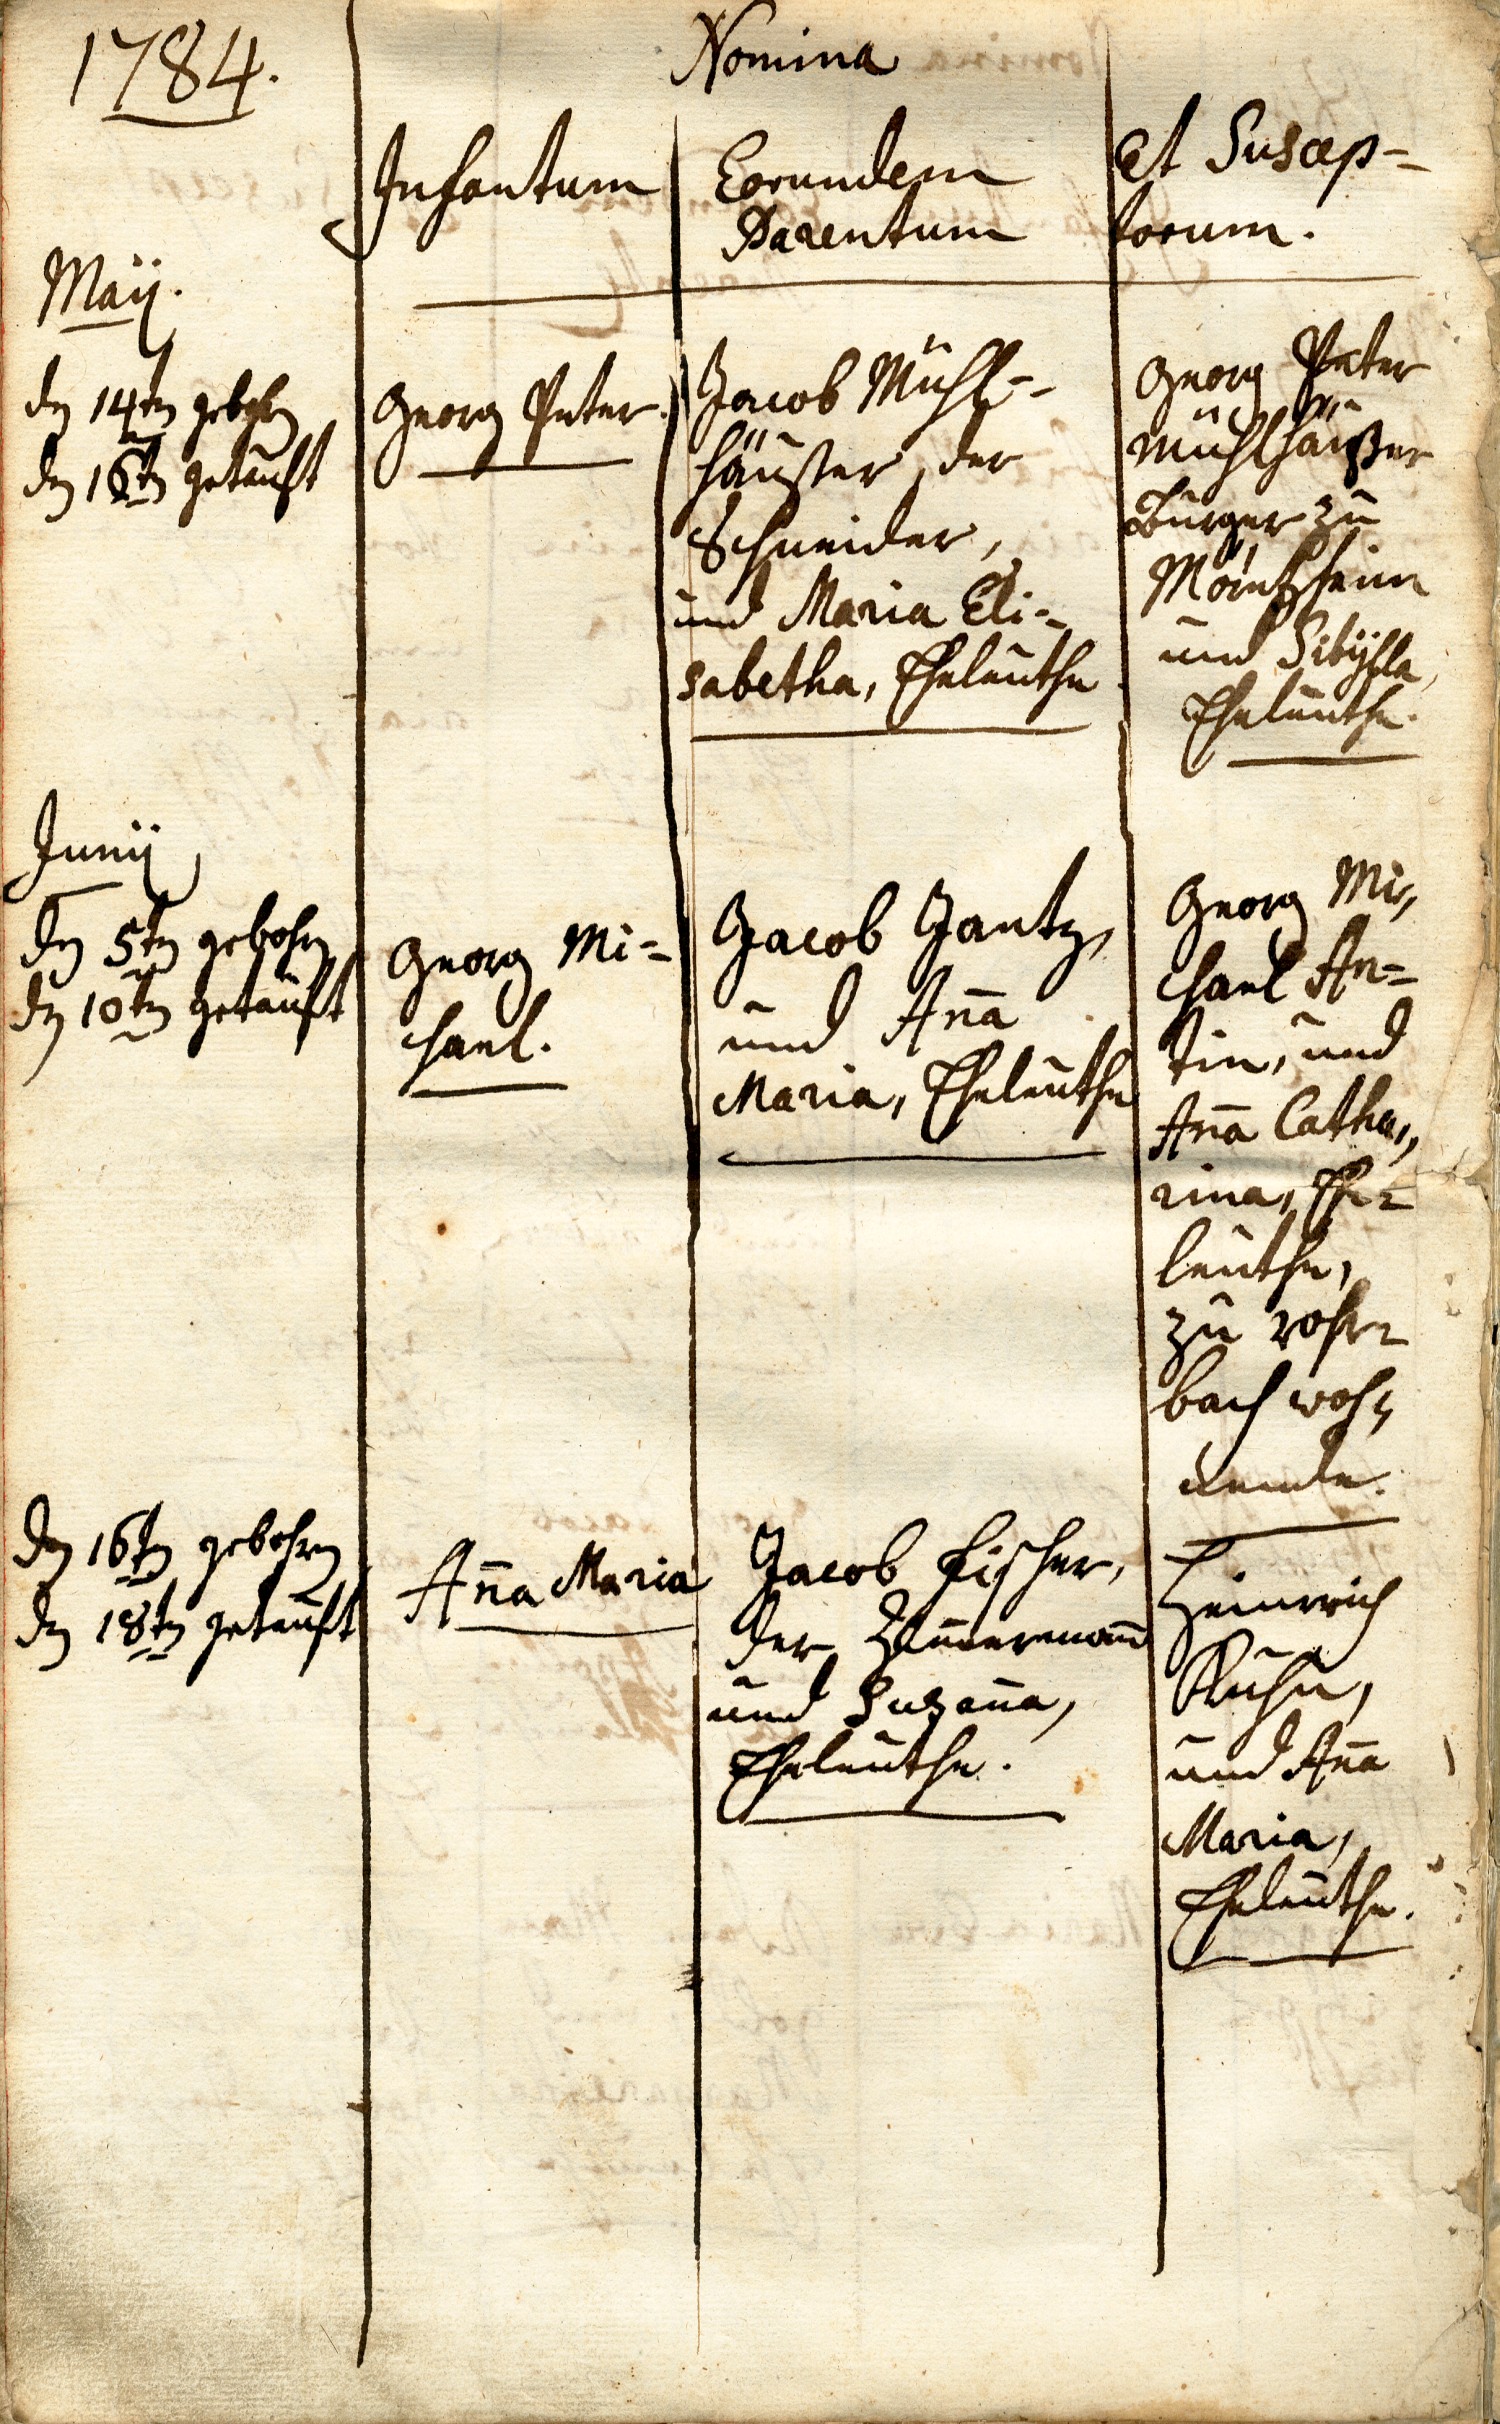 1784.
Nomina
Infantum
Eorundem
Parentum
Et Suscep-
torum.
Maij.
dn 14tn gebohrn
dn 16tn getauft
Georg Peter.
Jacob Mühl-
häußer, der
Schneider,
und Maria Eli-
sabetha, Eheleuthe
Georg Peter
Mühlhäußer
Bürger zu
und Sibÿlla,
Eheleuthe.
Junij
dn 5tn gebohrn
dn 10tn getauft
Georg Mi=
chael.
Jacob Jantz,
und Aña
Maria, Eheleuthe
Georg Mi,,
chael An=
tin, und
Aña Catha,,
rina, Ehe=
leuthe,
zu rohr=
bach woh,,
nende.
dn 16tn gebohrn
dn 18tn getauft
Aña Maria
Jacob Fischer,
der Zim̄ermañ
und Susaña,
Eheleuthe.
Heinrich
Kuhn,
und Aña
Maria,
Eheleuthe.